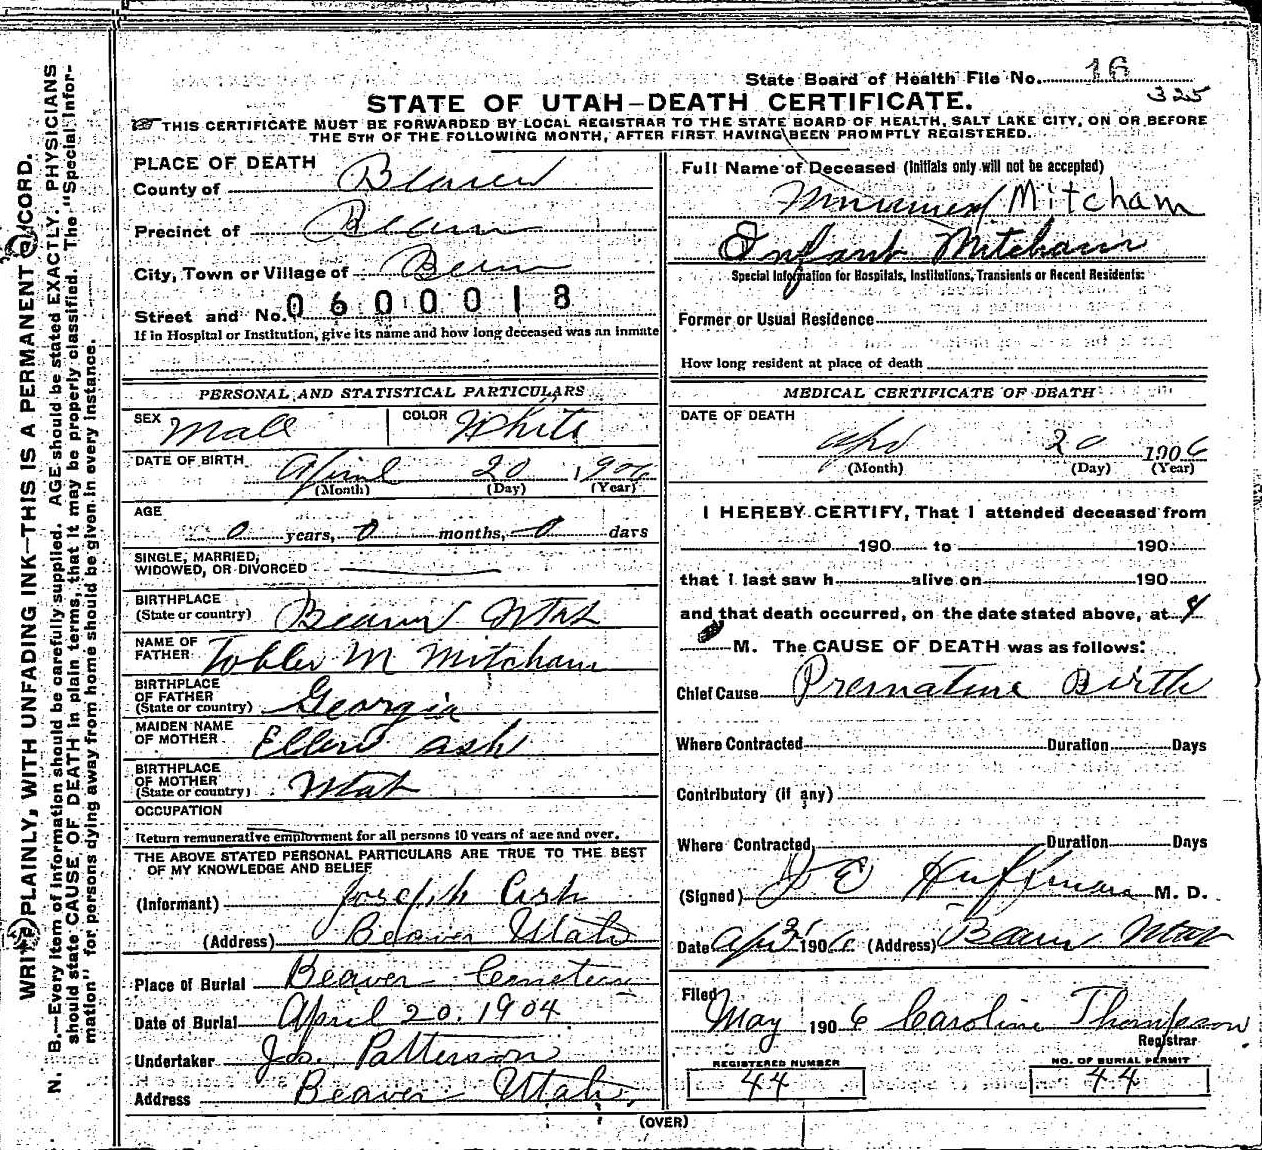 State Board of Health File No. 16
325
STATE OF UTAH—DEATH CERTIFICATE.
☞ THIS CERTIFICATE MUST BE FORWARDED BY LOCAL REGISTRAR TO THE STATE BOARD OF HEALTH, SALT LAKE CITY, ON OR BEFORE
THE 5TH OF THE FOLLOWING MONTH, AFTER FIRST HAVING BEEN PROMPTLY REGISTERED.
PLACE OF DEATH
County of Beaver
Precinct of Beaver
City, Town or Village of Beaver
Street and No. 0600018
If in Hospital or Institution, give its name and how long deceased was an inmate
PERSONAL AND STATISTICAL PARTICULARS
SEX Male COLOR White
DATE OF BIRTH April 20 1906
(Month) (Day) (Year)
AGE
0 years, 0 months, 0 days
SINGLE, MARRIED,
WIDOWED, OR DIVORCED
BIRTHPLACE
(State or country) Beaver Utah
NAME OF
FATHER M Mitcham
BIRTHPLACE
OF FATHER
(State or country) Georgia
MAIDEN NAME
OF MOTHER Ellen Ash
BIRTHPLACE
OF MOTHER
(State or country) Utah
OCCUPATION
Return remunerative employment for all persons 10 years of age and over.
THE ABOVE STATED PERSONAL PARTICULARS ARE TRUE TO THE BEST
OF MY KNOWLEDGE AND BELIEF
(Informant) Joseph Ash
(Address) Beaver Utah
Place of Burial Beaver Cemetery
Date of Burial April 20. 1904
Undertaker Jos. Patterson
Address Beaver Utah.
Full Name of Deceased (Initials only will not be accepted)
Mitcham
Infant Mitcham
Special Information for Hospitals, Institutions, Transients or Recent Residents:
Former or Usual Residence
How long resident at place of death
MEDICAL CERTIFICATE OF DEATH
DATE OF DEATH
Apr 20 1906
(Month) (Day) (Year)
I HEREBY CERTIFY, That I attended deceased from
190 to 190
that I last saw h alive on 190
and that death occurred, on the date stated above, at
M. The CAUSE OF DEATH was as follows:
Chief Cause Premature Birth
Where Contracted Duration Days
Contributory (if any)
Where Contracted Duration Days
(Signed) Huffman M. D.
Date 1906 (Address) Beaver Utah
Filed
May 1906 Caroline Thompson
Registrar
REGISTERED NUMBER NO. OF BURIAL PERMIT
44 44
(OVER)
WRITE PLAINLY, WITH UNFADING INK—THIS IS A PERMANENT RECORD.
N. B.—Every item of information should be carefully supplied. AGE should be stated EXACTLY. PHYSICIANS
should state CAUSE OF DEATH in plain terms, that it may be properly classified. The "Special Infor-
mation" for persons dying away from home should be given in every instance.